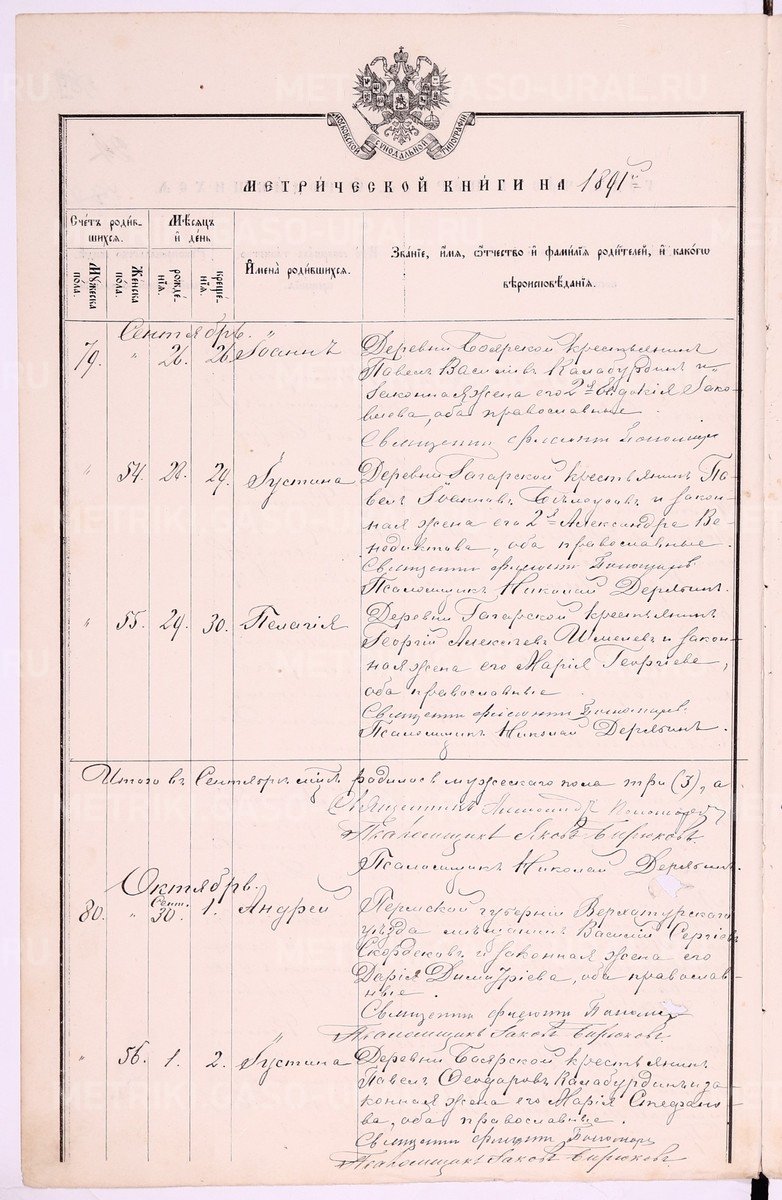 МОСКОВСКОЙ СѴНОДАЛЬНОЙ ТИПОГРАФІИ
МЕТРИЧЕСКОЙ КНИГИ НА 1891 г.
Счетъ родившихся. Мѣсяцъ и день Имена родившихся. Званіе, имя, отчество и фамилія родителей, и какого вѣроисповѣданія.
Мужеска пола. Женска пола. рожденія. крещенія.
Сентябрь.
79. " 26. 26. Іоаннъ Деревни Боярской крестьянинъ
Павелъ Васильевъ Калабурдинъ и
законная жена его 2ᵃ Евдокія Яков-
лева, оба православные.
Священникъ
" 54. 28. 29. Іустина Деревни Гагарской крестьянинъ Па-
велъ Іоанновъ Бѣлоусовъ и закон-
ная жена его 2ᵃ Александра Ве-
недиктова, оба православные.
Священникъ
Псаломщикъ Николай Дерябинъ.
" 55. 29. 30. Пелагія Деревни Гагарской крестьянинъ
Георгій Алексѣевъ Шмелевъ и закон-
ная жена его Марія Георгіева,
оба православные.
Священникъ
Псаломщикъ Николай Дерябинъ.
Итого въ Сентябрѣ мцѣ родилось мужескаго пола три (3), а
Священникъ Пономаревъ
Псаломщикъ Яковъ Бирюковъ.
Псаломщикъ Николай Дерябинъ.
Октябрь.
80. " Сент. 30. 1. Андрей Пермской губерніи Верхотурскаго
уѣзда мѣщанинъ Василій Сергіевъ
и законная жена его
Дарія Димитріева, оба православ-
ные.
Священникъ
Псаломщикъ Яковъ Бирюковъ
" 56. 1. 2. Іустина Деревни Боярской крестьянинъ
Павелъ Ѳеодоровъ Калабурдинъ и за-
конная жена его Марія Стефано-
ва, оба православные.
Священникъ
Псаломщикъ Яковъ Бирюковъ